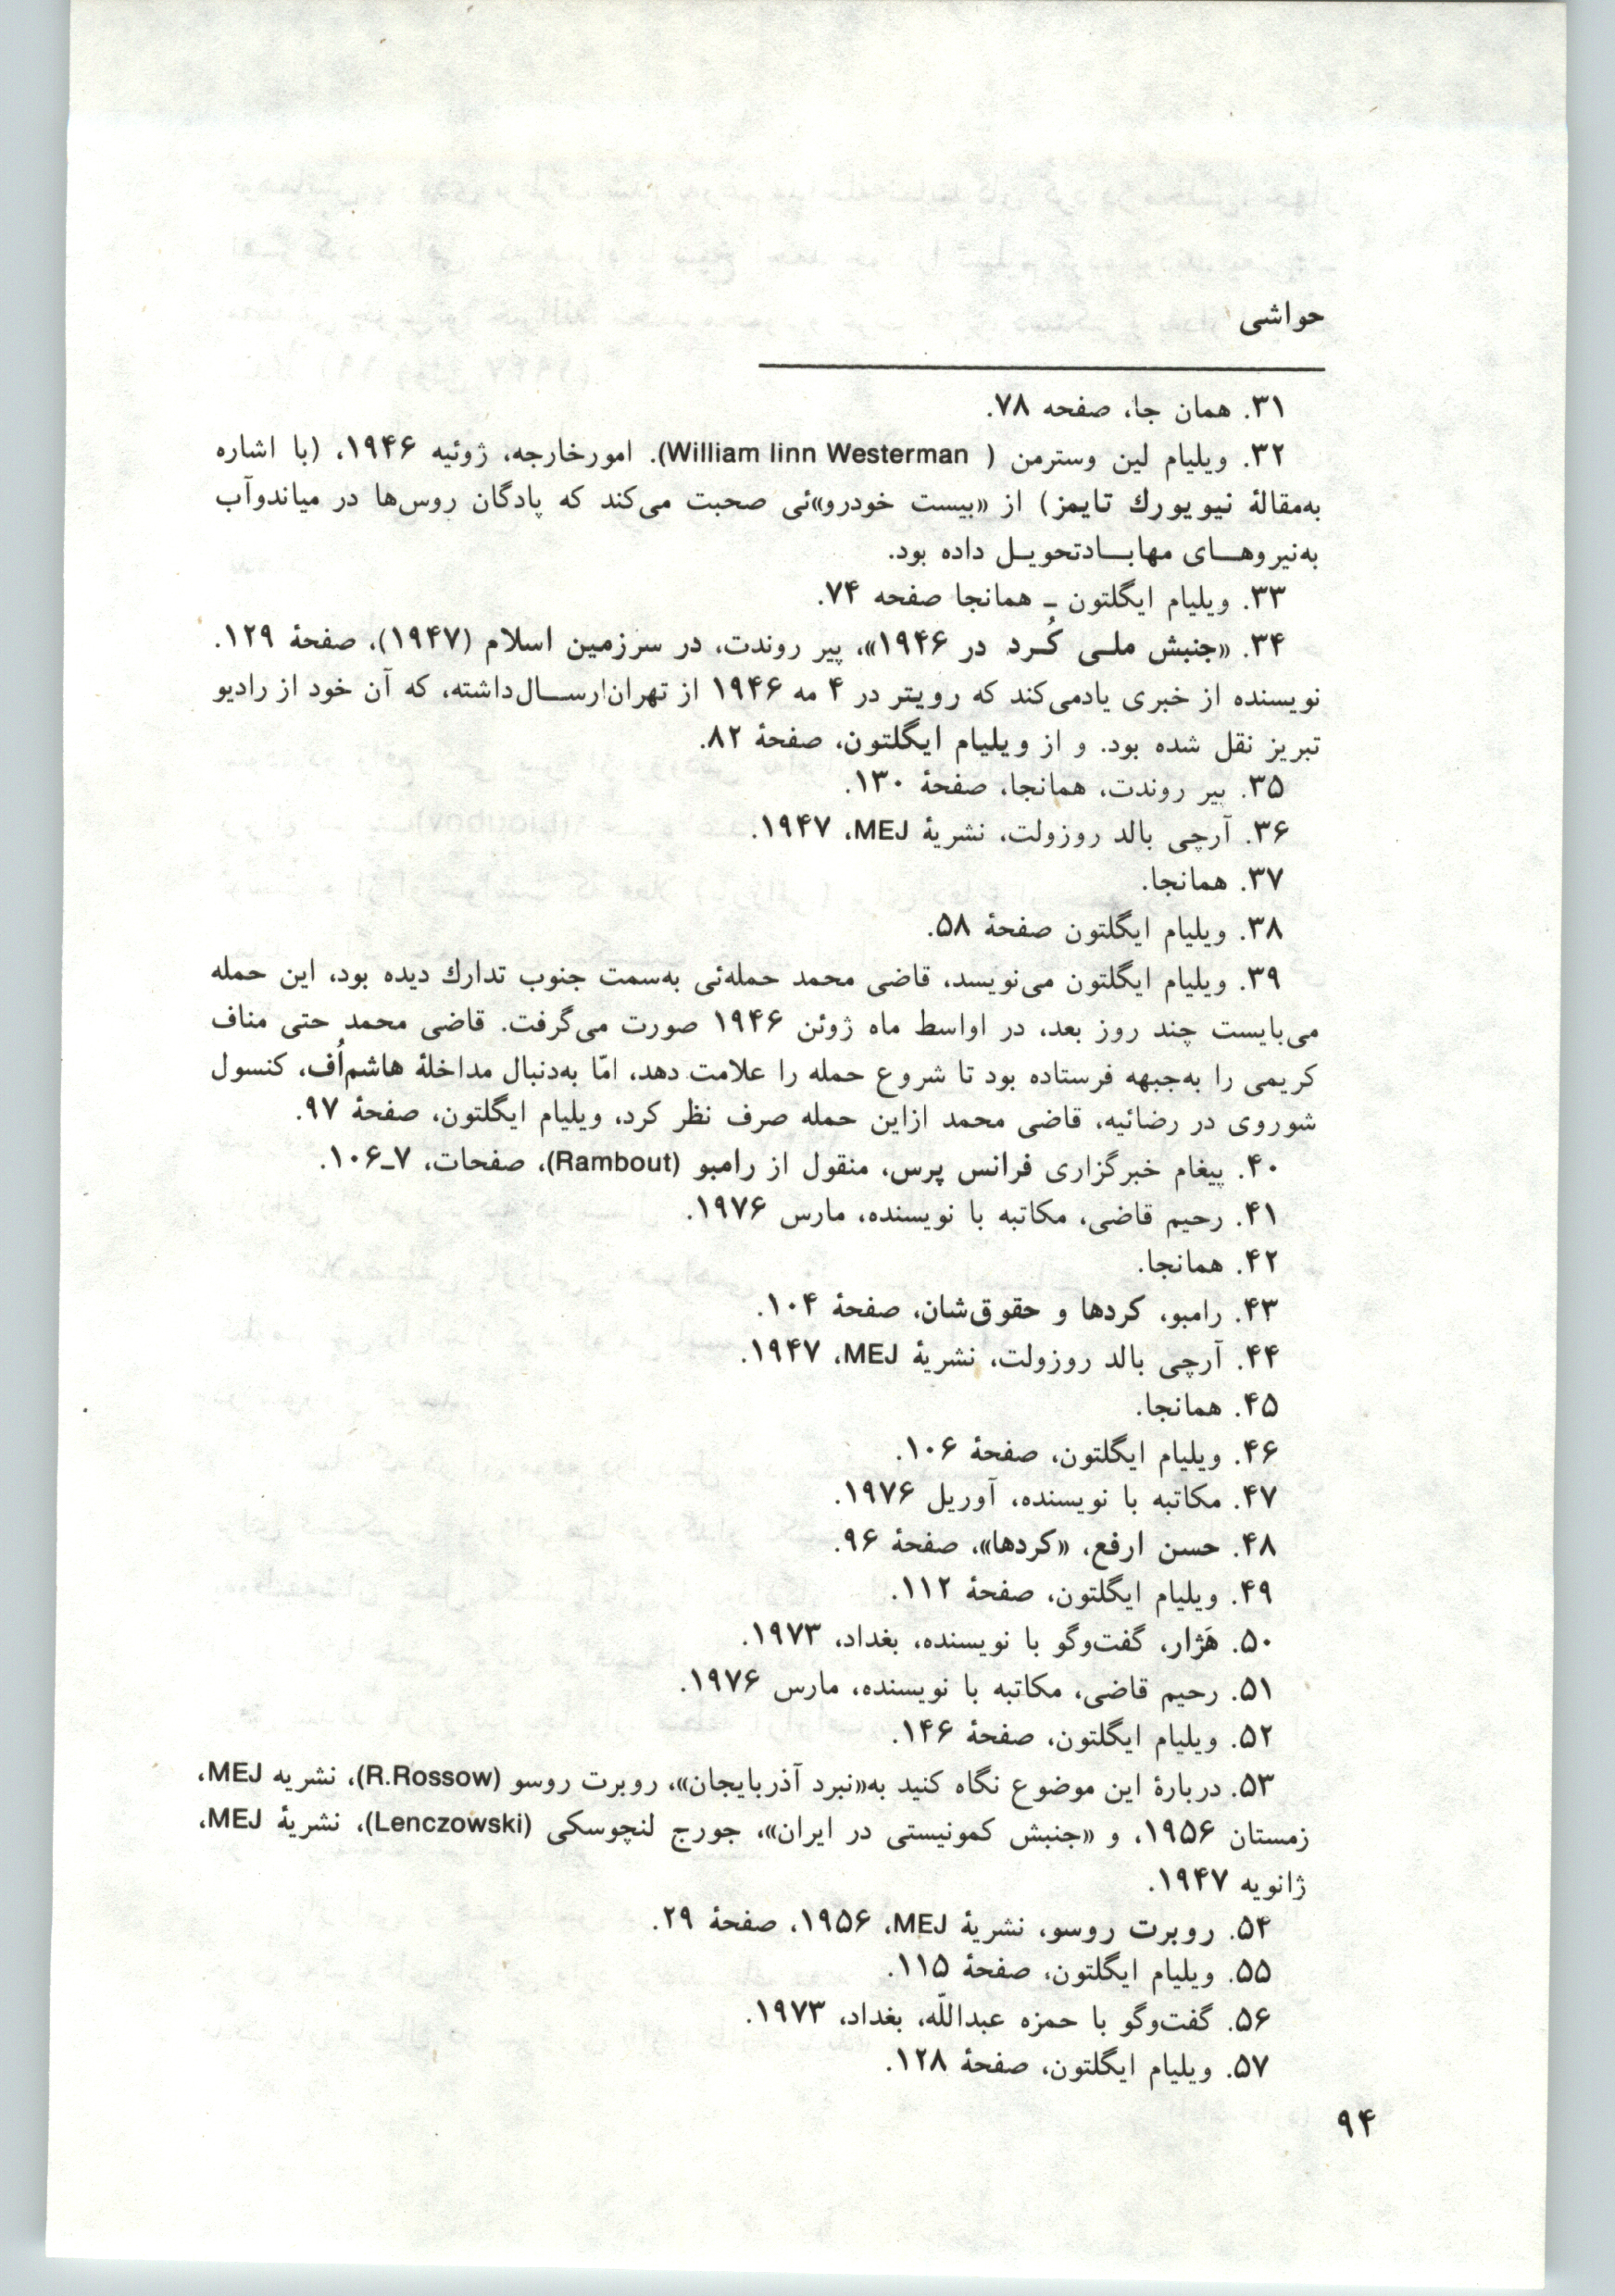 حواشی
۳۱. همان جا، صفحه ۷۸.
۳۲. ویلیام لین وسترمن ( William linn Westerman). امورخارجه، ژوئیه ۱۹۴۶، (با اشاره
به‌مقالهٔ نیویورك تایمز) از «بیست خودرو»ئی صحبت می‌کند که پادگان روس‌ها در میاندوآب
به‌نیروهـــای مهابـــادتحویـل داده بود.
۳۳. ویلیام ایگلتون ـ همانجا صفحه ۷۴.
۳۴. «جنبش ملـی کُـرد در ۱۹۴۶»، پیر روندت، در سرزمین اسلام (۱۹۴۷)، صفحهٔ ۱۲۹.
نویسنده از خبری یادمی‌کند که رویتر در ۴ مه ۱۹۴۶ از تهران‌ارســـال‌داشته، که آن خود از رادیو
تبریز نقل شده بود. و از ویلیام ایگلتون، صفحهٔ ۸۲.
۳۵. پیر روندت، همانجا، صفحهٔ ۱۳۰.
۳۶. آرچی بالد روزولت، نشریهٔ MEJ، ۱۹۴۷.
۳۷. همانجا.
۳۸. ویلیام ایگلتون صفحهٔ ۵۸.
۳۹. ویلیام ایگلتون می‌نویسد، قاضی محمد حمله‌ئی به‌سمت جنوب تدارك دیده بود، این حمله
می‌بایست چند روز بعد، در اواسط ماه ژوئن ۱۹۴۶ صورت می‌گرفت. قاضی محمد حتی مناف
کریمی را به‌جبهه فرستاده بود تا شروع حمله را علامت دهد، امّا به‌دنبال مداخلهٔ هاشم‌اُف، کنسول
شوروی در رضائیه، قاضی محمد ازاین حمله صرف نظر کرد، ویلیام ایگلتون، صفحهٔ ۹۷.
۴۰. پیغام خبرگزاری فرانس پرس، منقول از رامبو (Rambout)، صفحات، ۷ـ۱۰۶.
۴۱. رحیم قاضی، مکاتبه با نویسنده، مارس ۱۹۷۶.
۴۲. همانجا.
۴۳. رامبو، کردها و حقوق‌شان، صفحهٔ ۱۰۴.
۴۴. آرچی بالد روزولت، نشریهٔ MEJ، ۱۹۴۷.
۴۵. همانجا.
۴۶. ویلیام ایگلتون، صفحهٔ ۱۰۶.
۴۷. مکاتبه با نویسنده، آوریل ۱۹۷۶.
۴۸. حسن ارفع، «کردها»، صفحهٔ ۹۶.
۴۹. ویلیام ایگلتون، صفحهٔ ۱۱۲.
۵۰. هَژار، گفت‌وگو با نویسنده، بغداد، ۱۹۷۳.
۵۱. رحیم قاضی، مکاتبه با نویسنده، مارس ۱۹۷۶.
۵۲. ویلیام ایگلتون، صفحهٔ ۱۴۶.
۵۳. دربارهٔ این موضوع نگاه کنید به«نبرد آذربایجان»، روبرت روسو (R.Rossow)، نشریه MEJ،
زمستان ۱۹۵۶، و «جنبش کمونیستی در ایران»، جورج لنچوسکی (Lenczowski)، نشریهٔ MEJ،
ژانویه ۱۹۴۷.
۵۴. روبرت روسو، نشریهٔ MEJ، ۱۹۵۶، صفحهٔ ۲۹.
۵۵. ویلیام ایگلتون، صفحهٔ ۱۱۵.
۵۶. گفت‌وگو با حمزه عبداللّه، بغداد، ۱۹۷۳.
۵۷. ویلیام ایگلتون، صفحهٔ ۱۲۸.
۹۴